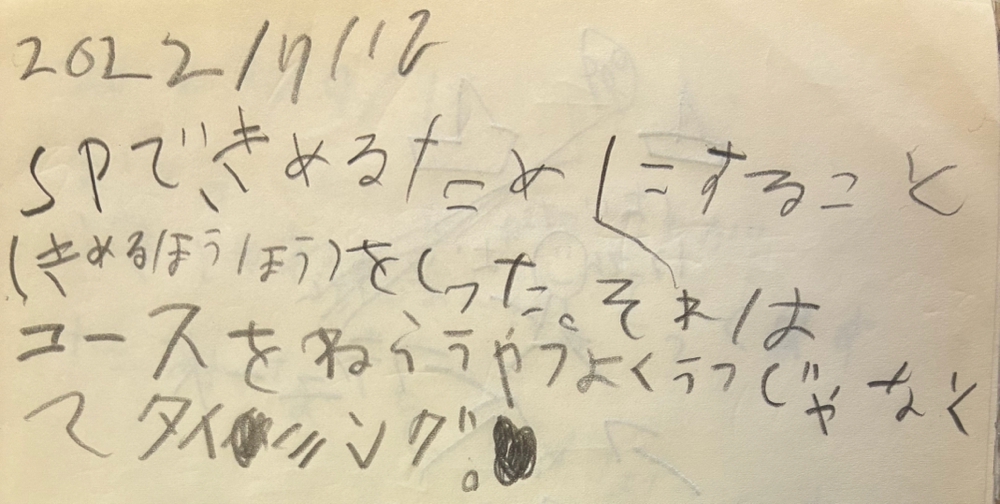 2022/11/12
SPできめるためにすること
(きめるほうほう)をしった。それは
コースをねらうやつよくうつじゃなく
てタイミング。